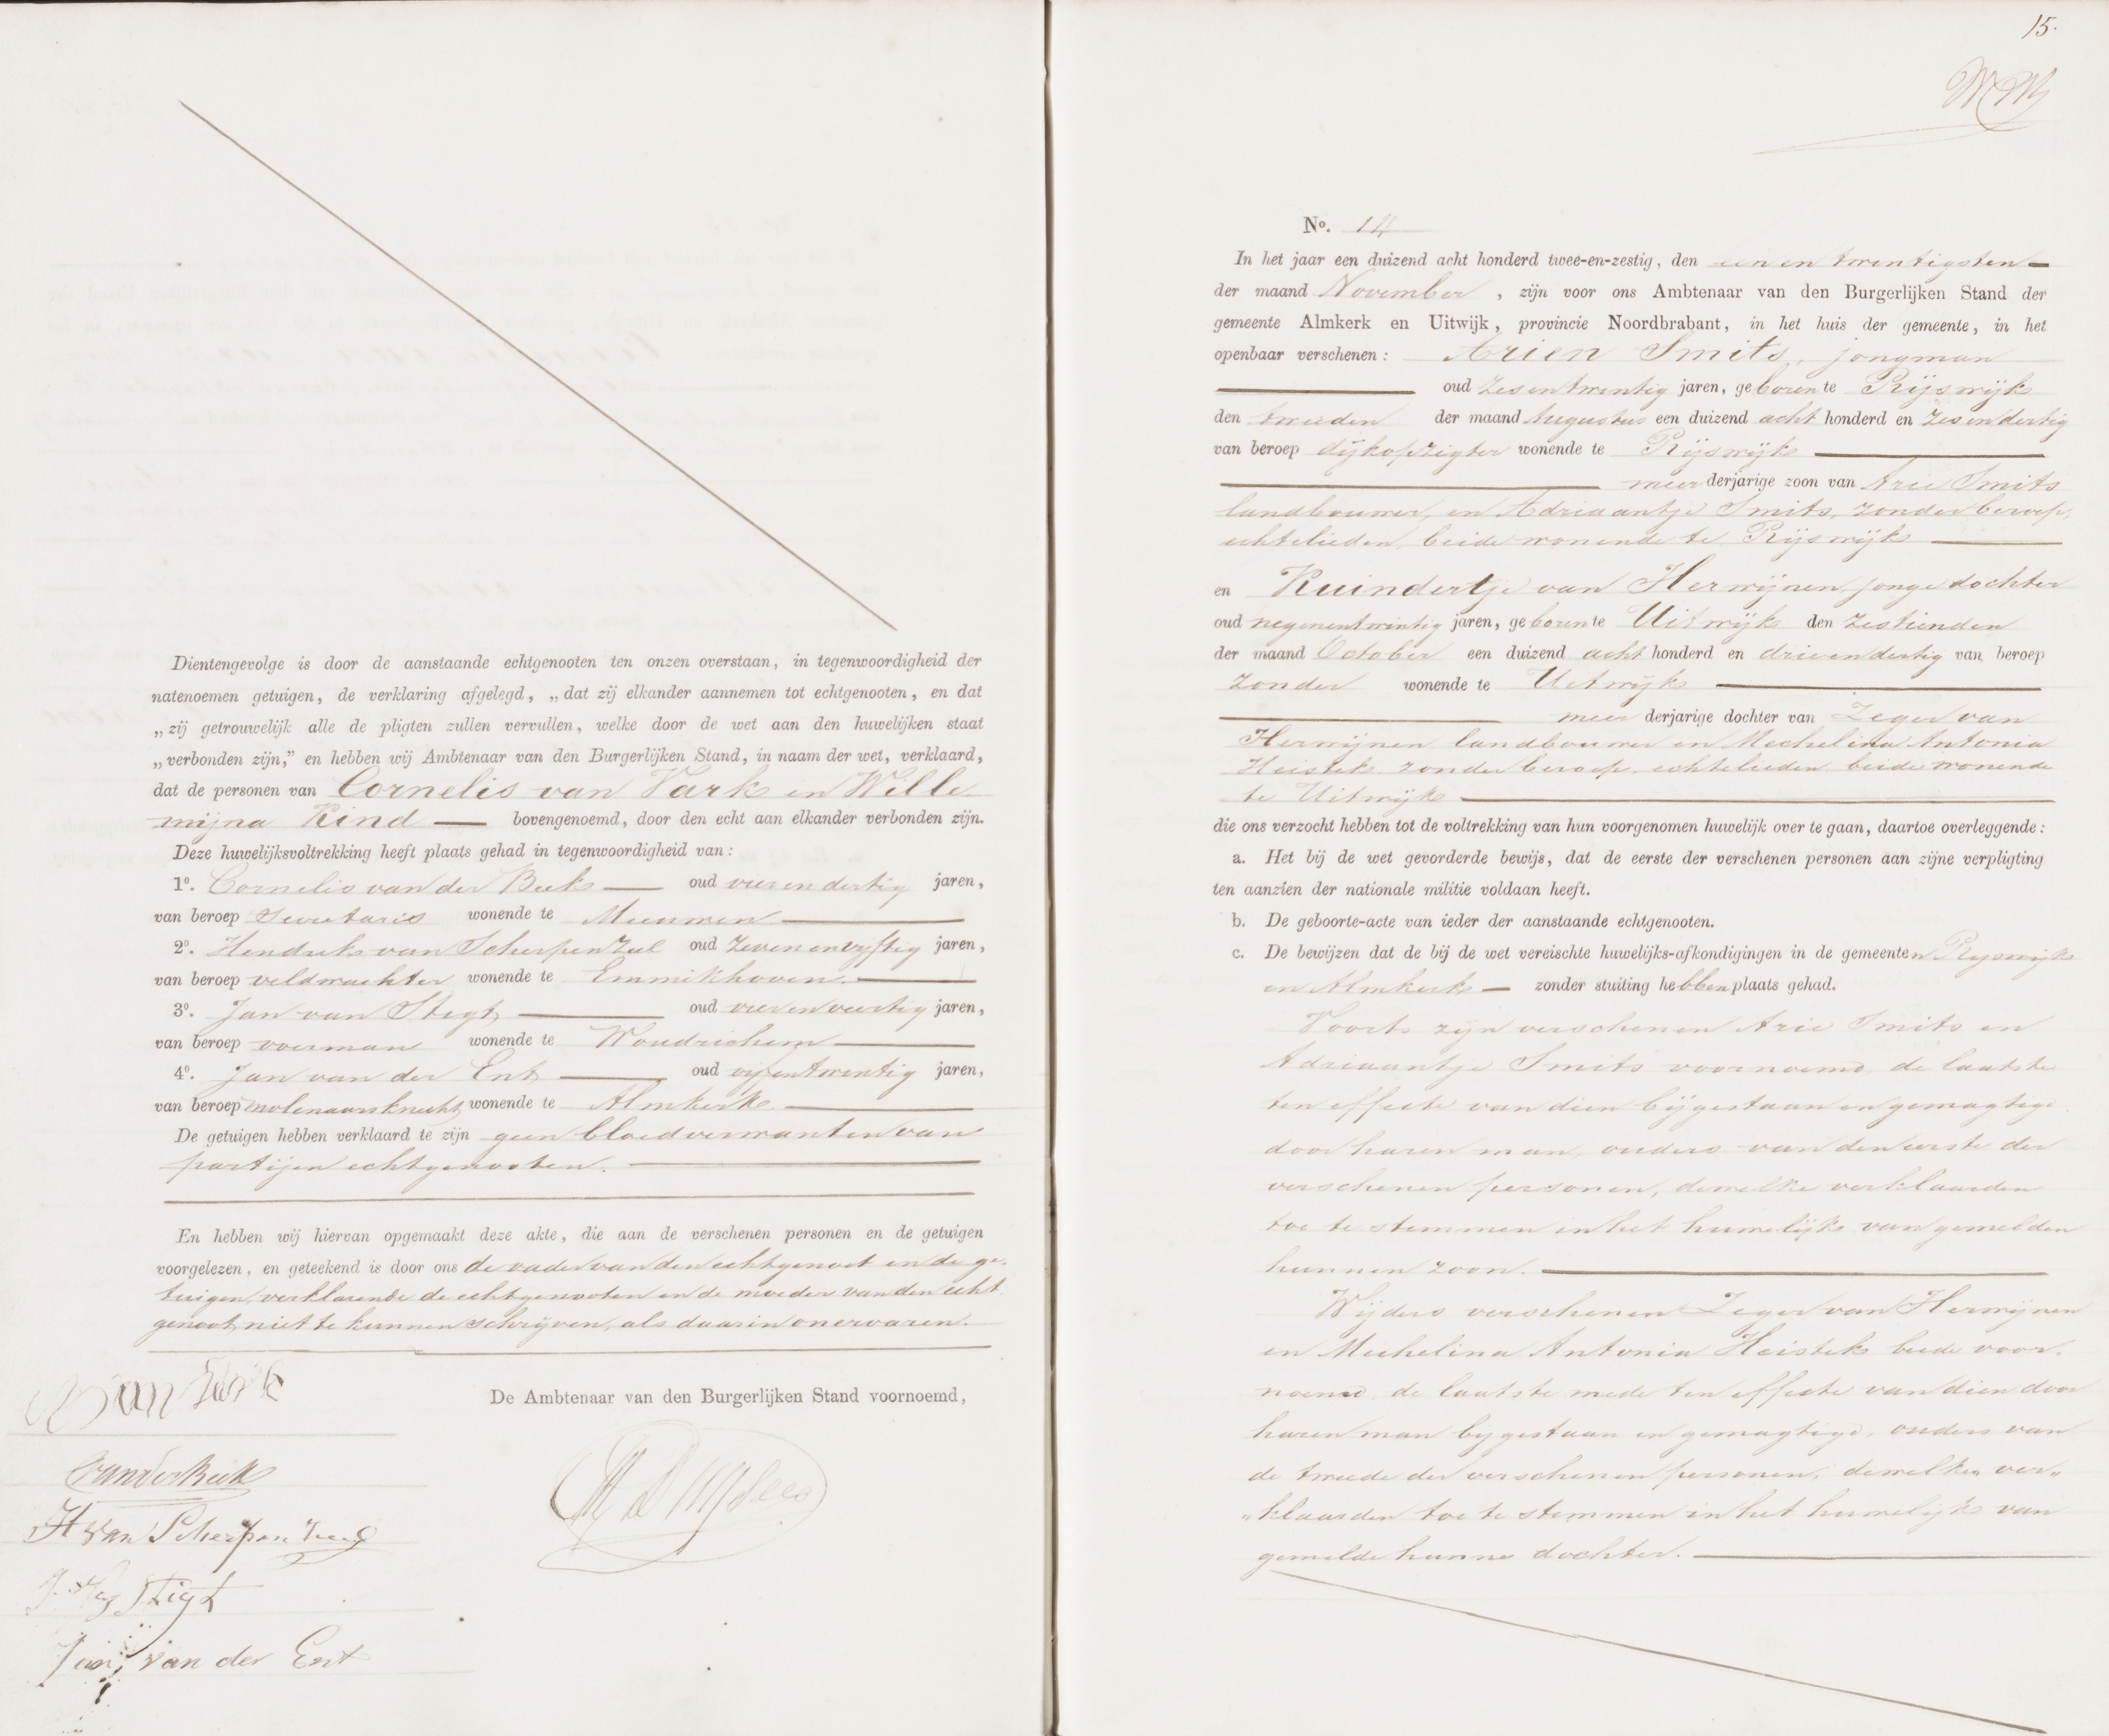 Dientengevolge is door de aanstaande echtgenooten ten onzen overstaan, in tegenwoordigheid der
natenoemen getuigen, de verklaring afgelegd, „dat zij elkander aannemen tot echtgenooten, en dat
„zij getrouwelijk alle de pligten zullen vervullen, welke door de wet aan den huwelijken staat
„verbonden zijn,” en hebben wij Ambtenaar van den Burgerlijken Stand, in naam der wet, verklaard,
dat de personen van Cornelis van Vark en Wille
mijna Kind bovengenoemd, door den echt aan elkander verbonden zijn.
Deze huwelijksvoltrekking heeft plaats gehad in tegenwoordigheid van:
1º. Cornelis van der Beek oud vier en dertig jaren,
van beroep Secretaris wonende te Meeuwen
2º. Hendrik van Scherpenzeel oud zeven en vijftig jaren,
van beroep veldwachter wonende te Emmikhoven.
3º. Jan van Stigt oud vier en veertig jaren,
van beroep voerman wonende te Woudrichem
4º. Jan van der Ent oud vijf en twentig jaren,
van beroep molenaarsknecht wonende te Almkerk.
De getuigen hebben verklaard te zijn geen bloedverwanten van
partijen echtgenooten.
En hebben wij hiervan opgemaakt deze akte, die aan de verschenen personen en de getuigen
voorgelezen, en geteekend is door ons de vader van den echtgenoot en de ge-
tuigen, verklarende de echtgenooten en de moeder van den echt
genoot, niet te kunnen schrijven, als daarin onervaren.
De Ambtenaar van den Burgerlijken Stand voornoemd,
van Vark
van der Beek
H van Scherpenzeel
Stigt
Jan van der Ent
15.
Nº. 14
In het jaar een duizend acht honderd twee-en-zestig, den een en twentigsten
der maand November, zijn voor ons Ambtenaar van den Burgerlijken Stand der
gemeente Almkerk en Uitwijk, provincie Noordbrabant, in het huis der gemeente, in het
openbaar verschenen: Arien Smits, jongman
oud zes en twentig jaren, geboren te Rijswijk
den tweeden der maand Augustus een duizend acht honderd en zes en dertig
van beroep dijkopzigter wonende te Rijswijk
meerderjarige zoon van Arie Smits
landbouwer, en Adriaantje Smits, zonder beroep,
echtelieden, beide wonende te Rijswijk
en Kuindertje van Herwijnen jonge dochter
oud negen en twintig jaren, geboren te Uitwijk den zestienden
der maand October een duizend acht honderd en drie en dertig van beroep
zonder wonende te Uitwijk
meerderjarige dochter van Zeger van
Herwijnen landbouwer en Mechelina Antonia
Heistek zonder beroep, echtelieden beide wonende
te Uitwijk
die ons verzocht hebben tot de voltrekking van hun voorgenomen huwelijk over te gaan, daartoe overleggende:
a. Het bij de wet gevorderde bewijs, dat de eerste der verschenen personen aan zijne verpligting
ten aanzien der nationale militie voldaan heeft.
b. De geboorte-acte van ieder der aanstaande echtgenooten.
c. De bewijzen dat de bij de wet vereischte huwelijks-afkondigingen in de gemeenten Rijswijk
en Almkerk zonder stuiting hebben plaats gehad.
Voorts zijn verschenen Arie Smits en
Adriaantje Smits voornoemd, de laatste
ten effecte van dien bijgestaan en gemagtigd
door haren man, ouders van den eerste der
verschenen personen, dewelke verklaarden
toe te stemmen in het huwelijk van gemelden
hunnen zoon.
Wijders verschenen Zeger van Herwijnen
en Mechelina Antonia Heistek beide voor-
noemd, de laatste mede ten effecte van dien door
haren man bijgestaan en gemagtigd, ouders van
de tweede der verschenen personen, dewelken ver„
„klaarden toe te stemmen in het huwelijk van
gemelde hunne dochter.